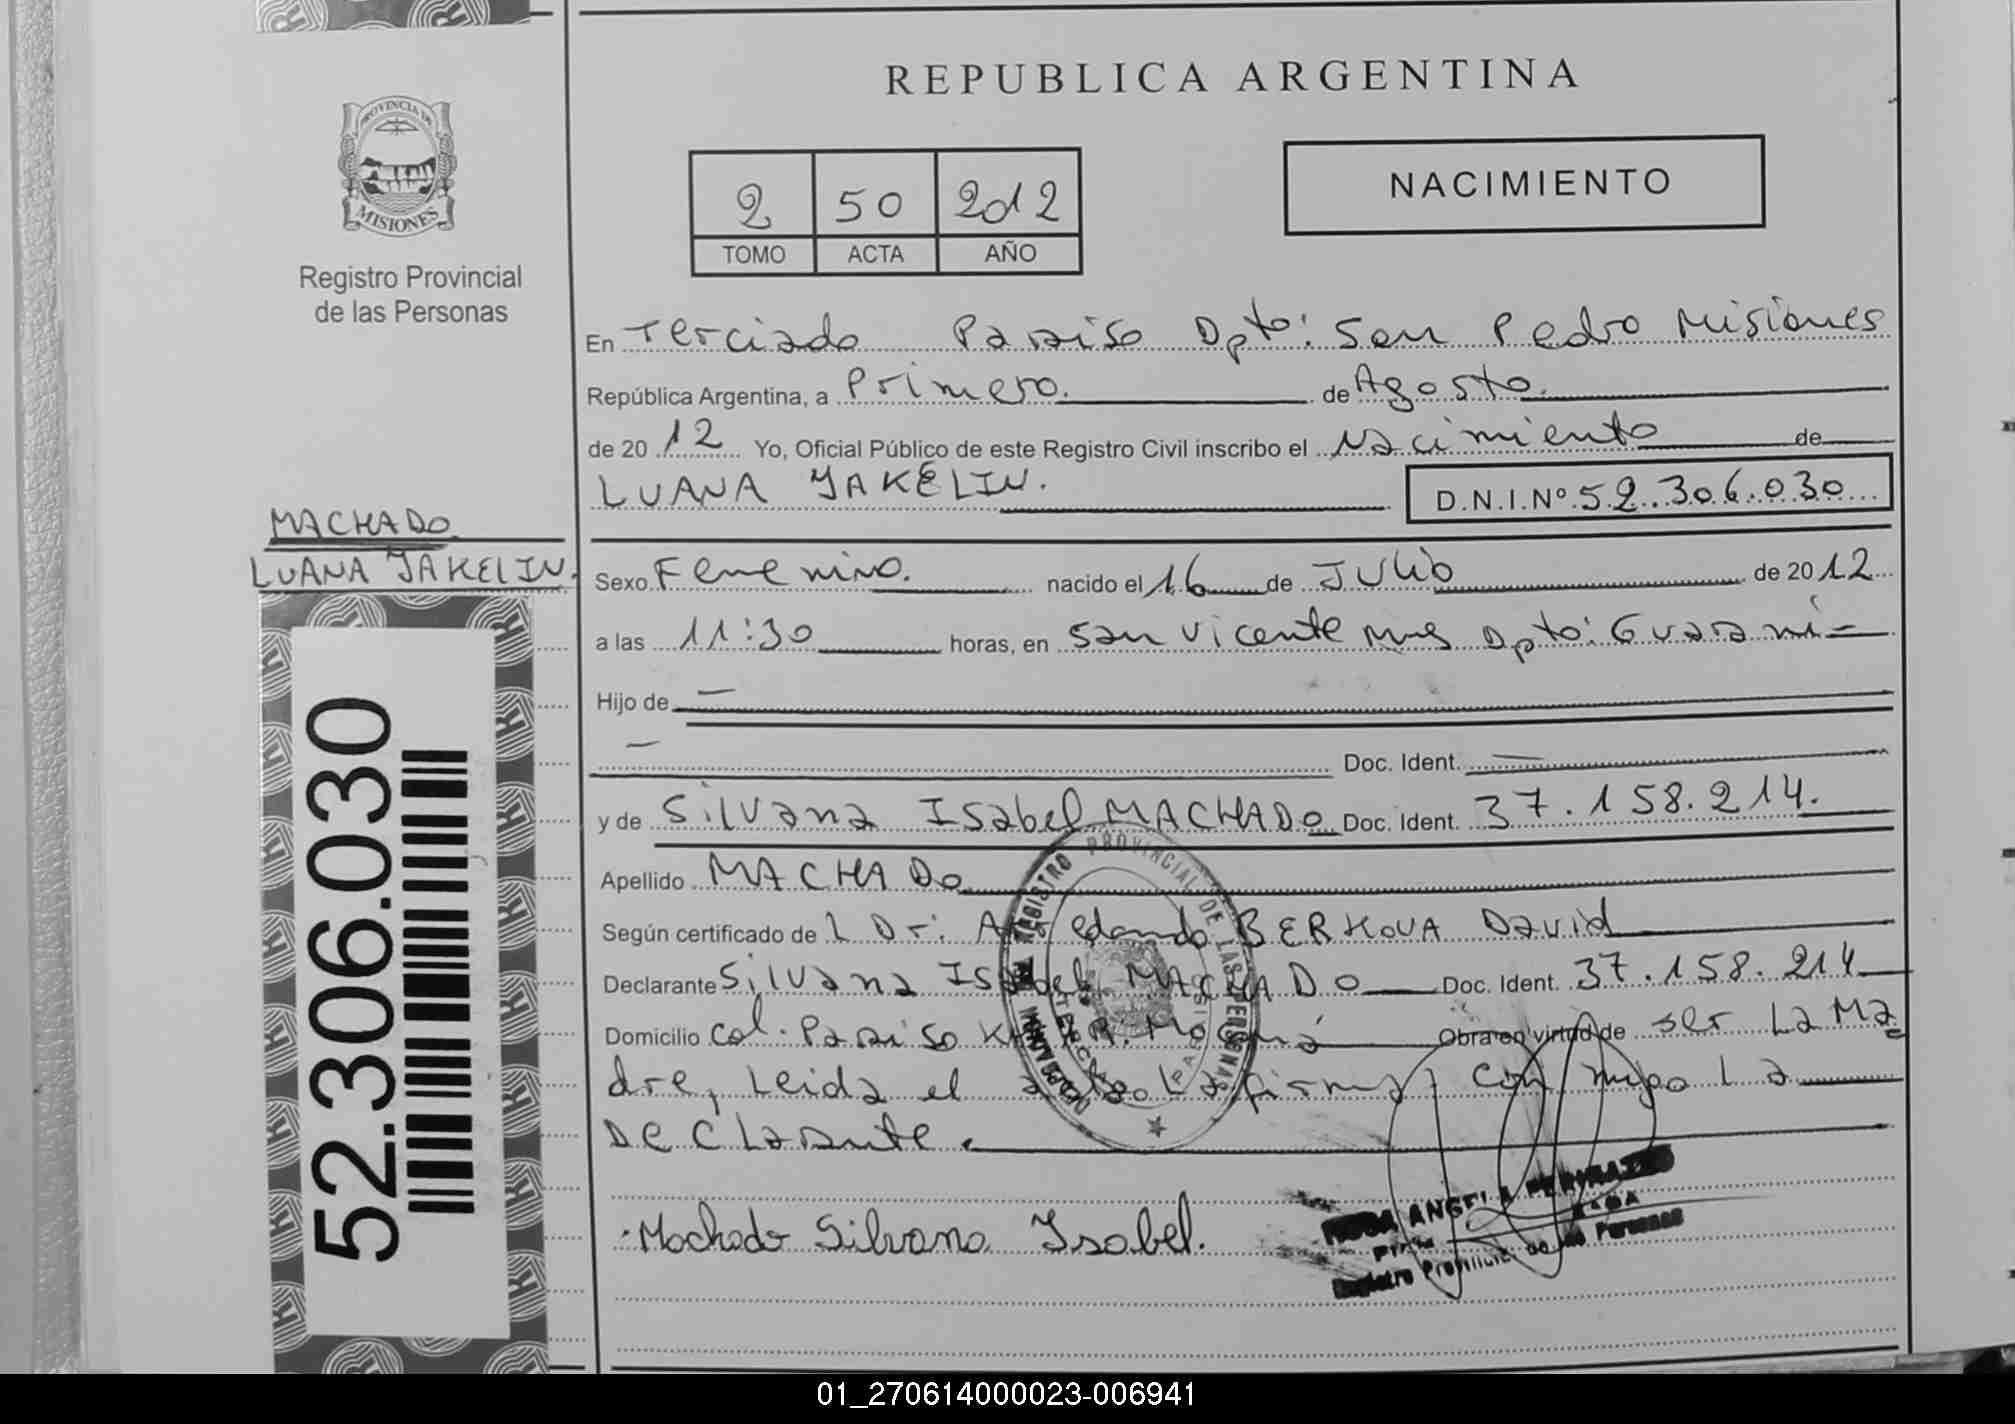 REPUBLICA ARGENTINA
PROVINCIA DE
MISIONES
Registro Provincial
de las Personas
2 50 2012
TOMO ACTA AÑO
NACIMIENTO
En Terciado Paraiso Dpto: San Pedro Misiones
República Argentina, a Primero. de Agosto.
de 20 12 Yo, Oficial Público de este Registro Civil inscribo el Nacimiento de
LUANA JAKELIN.
D.N.I.Nº 52.306.030
MACHADO
LUANA JAKELIN.
Sexo Femenino. nacido el 16 de JULio de 20 12
a las 11:30 horas, en San Vicente Mnes Dpto: Guarani =
Hijo de —
— Doc. Ident. —
y de Silvana Isabel MACHADO Doc. Ident. 37.158.214.
Apellido MACHADO
Según certificado de L Dr: BERKOVA David
Declarante Silvana Isabel MACHADO Doc. Ident. 37.158.214
Domicilio Col. Paraiso Obra en virtud de ser La Ma
dre, Leida el La firma con migo La
DeClarante.
Machado Silvana Isabel.
REGISTRO PROVINCIAL DE LAS PERSONAS
ROSA ANGELA
Registro Provincial de las Personas
52.306.030
01_270614000023-006941